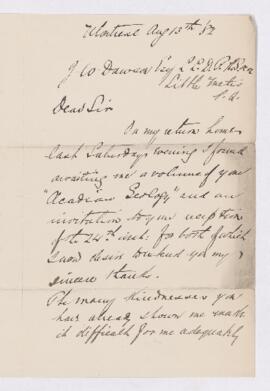 Montreal Aug 13th 82
J W Dawson Esq L.L.D.
Little Metis
Dear Sir
On my return home
last Saturday evening I found
awaiting me a volume of your
"Acadian Geology" and an
invitation to your reception
of the 24th inst: for both of which
I now desire to send you my
sincere thanks.
The many kindnesses you
have already shown me make
it difficult for me adequately